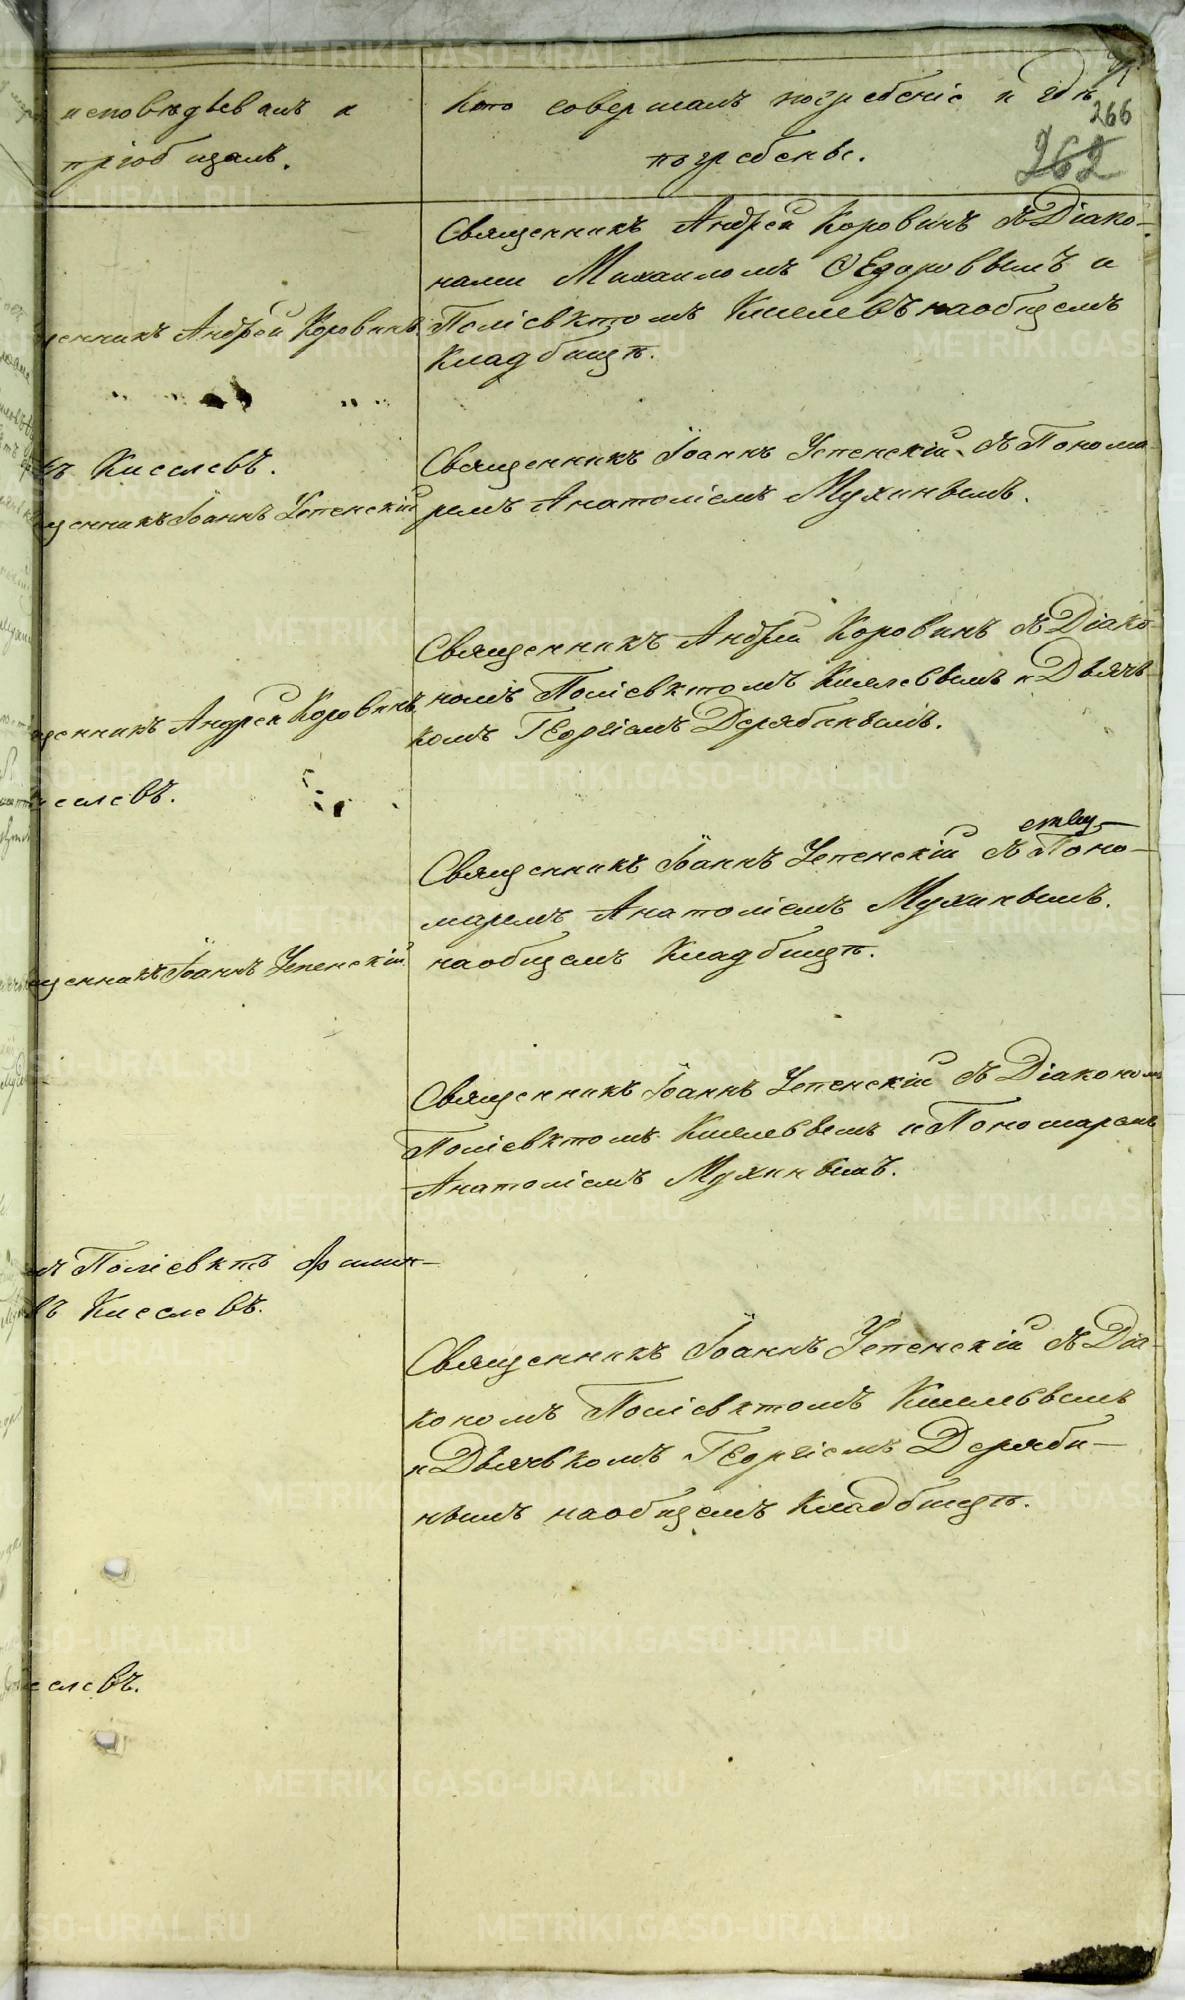 исповѣдывалъ и
пріобщалъ.
Кто совершалъ погребеніе и гдѣ
погребены.
266
262
Священникъ Андрей Коровинъ съ Діако-
нами Михаиломъ Ѳедоровымъ и
Поліевктомъ Киселевъ на общемъ
Кладбищѣ.
щенникъ Андрей Коровинъ.
въ Киселевъ.
щенникъ Іоаннъ Успенскій
Священникъ Іоаннъ Успенскій съ Понома-
ремъ Анатоліемъ Мухинымъ.
Священникъ Андрей Коровинъ съ Діако-
номъ Поліевктомъ Киселевымъ и Дьячь-
комъ Георгіемъ Дерябинымъ.
щенникъ Андрей Коровинъ.
селевъ.
Священникъ Іоаннъ Успенскій съ Поно-
маремъ Анатоліемъ Мухинымъ.
на общемъ Кладбищѣ.
щенникъ Іоаннъ Успенскій.
Священникъ Іоаннъ Успенскій съ Діакономъ
Поліевктомъ Киселевымъ и Пономаремъ
Анатоліемъ Мухинымъ.
Поліевктъ Филип-
въ Киселевъ.
Священникъ Іоаннъ Успенскій съ Діа-
кономъ Поліевктомъ Киселевымъ
и Дьячькомъ Георгіемъ Деряби-
нымъ на общемъ Кладбищѣ.
селевъ.
METRIKI.GASO-URAL.RU